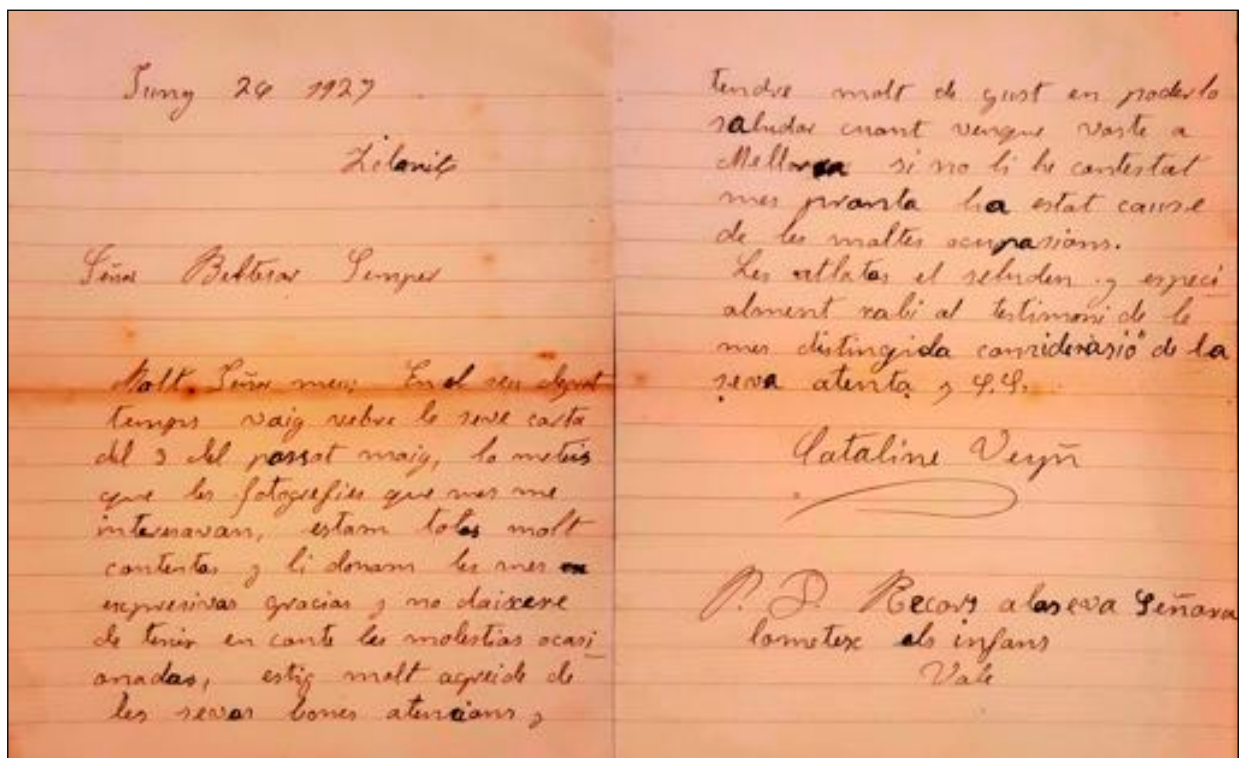 Juny 24 1927
Felanitx
Señor Beltesar Semper
Molt Señor meu; En el seu degut
temps vaig rebre le seve carta
del 3 del passat maig, lo meteis
que les fotografies que mes me
interesavan, estam totes molt
contentas y li donam les mes
expresivas gracias y no daixere
de tenir en conte les molestias ocasi
onadas, estig molt agreide de
les sevas bones atencions y
tendre molt de gust en poderlo
saludar cuant vengue voste a
Mellorca si no li he contestat
mes pronta ha estat cause
de les moltes ocupasions.
Les atlotes el seluden y especi
alment rabi el testimoni de le
mes distingida considerasió de la
seva atenta y S.S.
Cataline Veyñ
P. D. Recors a la seva Señora
lometex els infans
Vale